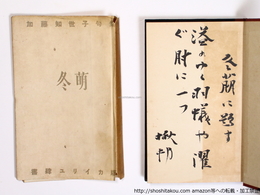 加藤知世子句集
冬萌
冬萌に題す
溢れゆく羽蟻や濯
ぐ肘に一つ
楸邨
http://shoshitakou.com amazon等への転載・加工禁止